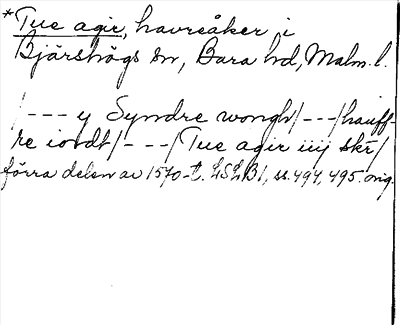 *Tue agir, havreåker i
Bjärshögs sn, Bara hd, Malm. l.
/--- y Syndre wongh/---/hauff-
re iordt/---/Tue agir iiij skr/
förra delen av 1570-t. LSLB1, ss. 494, 495. orig.